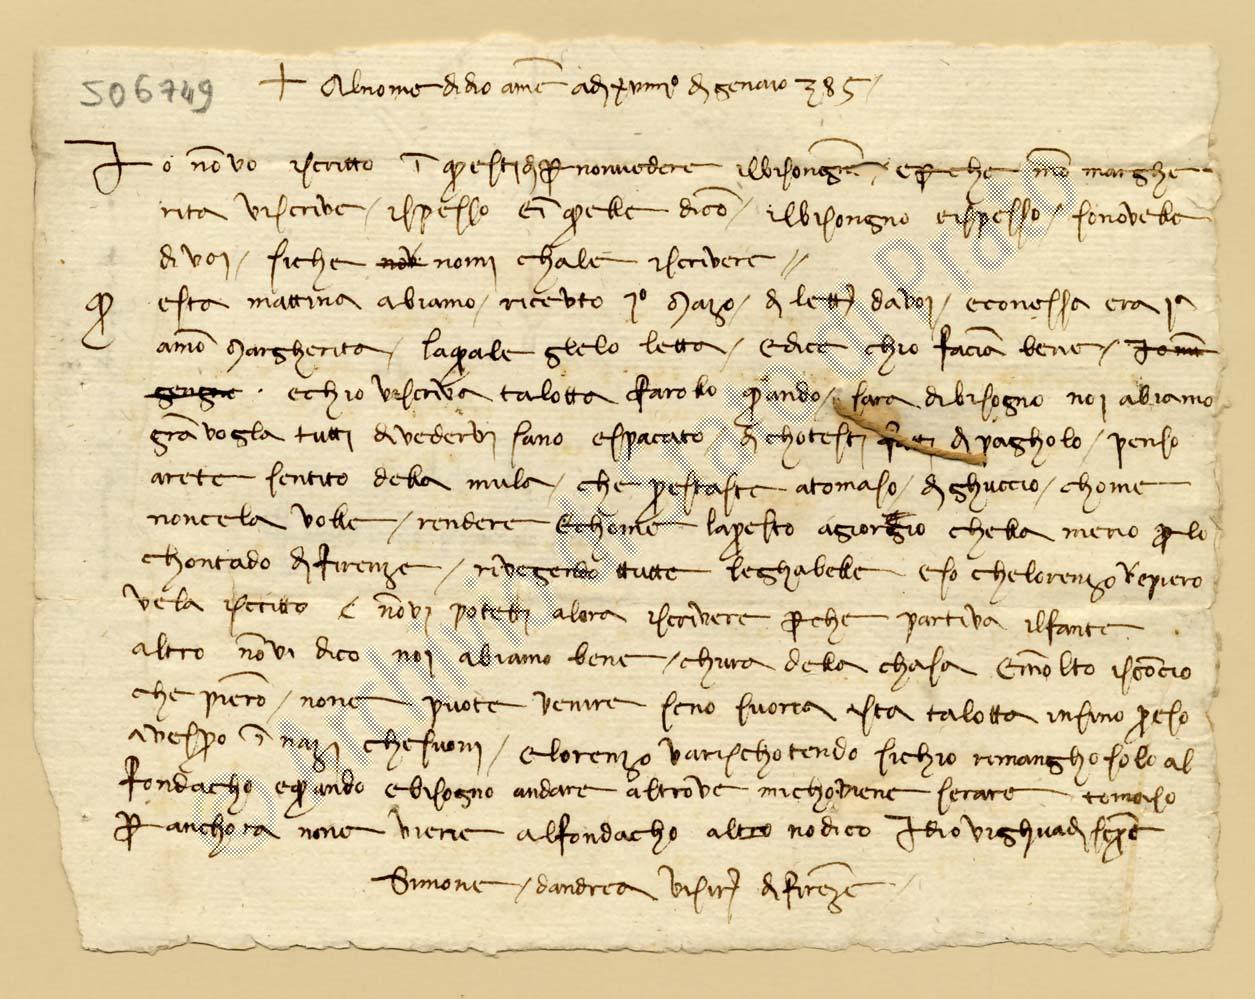 506749
+ Al nome di dio amē adi xviiiiº di genaio 385
Io nōn vo iscritto ī questi dì p nonvedere ilbisongnē e pche mōn marghe
rita vi scrive / ispesso e ī quelle dicō / ilbisongno eispesso / so novelle
di voi / siche nōn nomi chale iscrivere //
Questa mattina abiamo / ricevto jº mazo / di lettē da voi / econessa era jª
a mōn margherita / laquale glelo letta / e dice chio facia bene /
echio vi scriva talotta farollo quando / sara dibisogno noi abiamo
grā vogla tutti di vedervi sano e spacato / di chotesti di pagholo / penso
arete sentito della mula / che prestaste a tomaso / di ghuccio / chome
non cela volle / rendere e chome la presto a giorgio chella menò p lo
chontado di firenze / rivegendo tutte le ghabelle e so che lorenzo e piero
ve la iscritto e nōn vi potetti alora iscrivere pche partiva il fante
altro nōn vi dico noi abiamo bene / chura della chasa e mōlto iscōcio
che pierō / none puote venire seno fuoria ista talotta insino preso
a vespro ī nazi che fuori / e lorenzo va rischotendo sichio rimangho solo al
fondacho e quando e bisogno andare altrove mi choviene serare tomaso
p anchora none viene al fondacho altro no dico Idio vi ghuadi senpre
Simone / d andrea vi si rª di firenze
Archivio di Stato di Prato